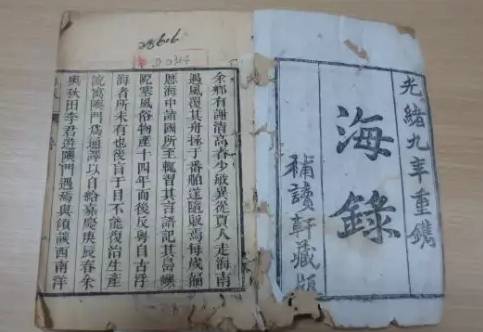 光緒九年重鐫
海錄
補讀軒藏版
余鄉有謝清高者少敏異從賈人走海南
遇風覆其舟拯于番舶遂隨販焉每歲徧
歷海中諸國所至輒習其言語記其島嶼
阨塞風俗物產十四年而後反粵自古浮
海者所未有也後盲于目不能復治生產
流寓澳門爲通譯以自給嘉慶庚辰春余
與秋田李君遊澳門遇焉與傾談西南洋